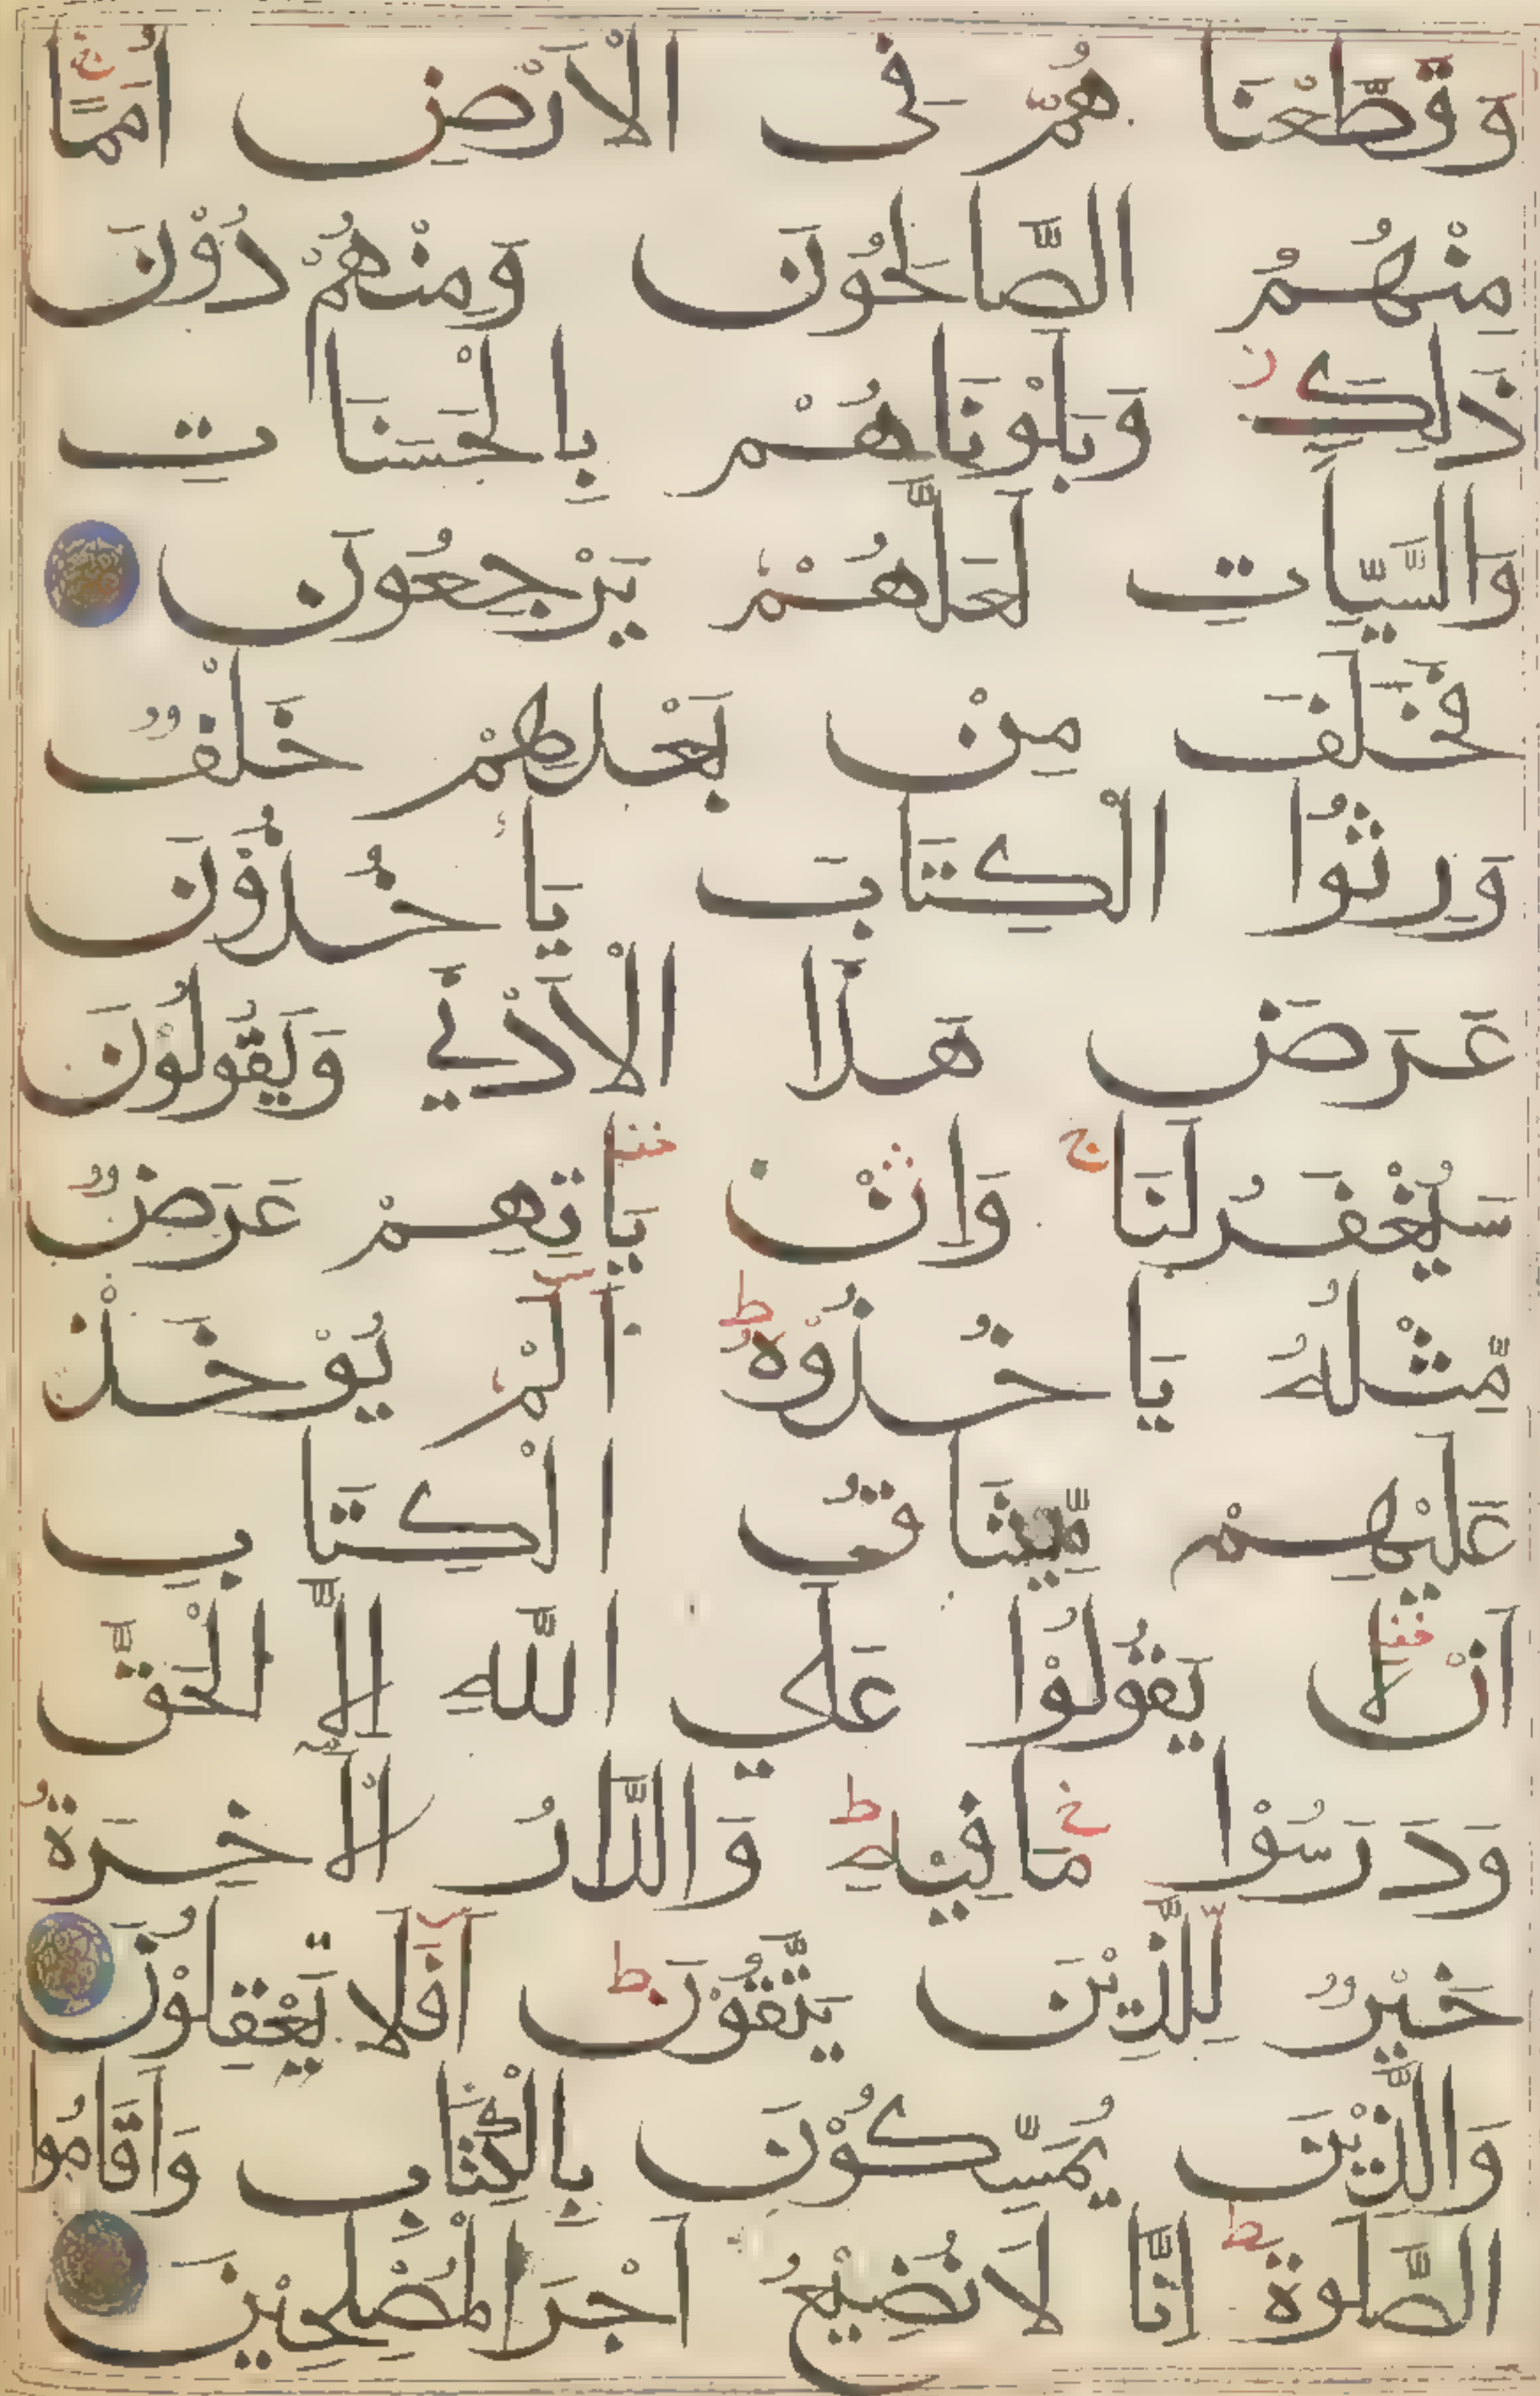 وَقَطَّعْنَا هُمْ فِى الْاَرْضِ اُمَمًا
مِنْهُمُ الصَّالِحُونَ وَمِنْهُمْ دُوْنَ
ذَلِكَ وَبَلَوْنَاهُمْ بِالْحَسَنَاتِ
وَالسَّيِّاٰتِ لَعَلَّهُمْ يَرْجِعُونَ
فَخَلَفَ مِنْ بَعْدِهِمْ خَلْفٌ
وَرِثُوا الْكِتَابَ يَاخُذُوْنَ
عَرَضَ هَذَا الْاَدْنٰي وَيَقُولُوْنَ
سَيُغْفَرُ لَنَا ج وَاِنْ يَاتِهِمْ عَرَضٌ
مِّثْلُهُ يَاخُذُوْهُ ط اَلَمْ يُوْخَذْ
عَلَيْهِمْ مِّيْثَاقُ الْكِتَابِ
اَنْ لَا يَقُوْلُوْا عَلَي اللّٰهِ اِلَّا الْحَقَّ
وَدَرَسُوْا مَا فِيْهِ ط وَالدَّارُ الْاٰخِرَةُ
خَيْرٌ لِّلَّذِيْنَ يَتَّقُوْنَ ط اَفَلَا تَعْقِلُوْنَ
وَالَّذِيْنَ يُمَسِّكُوْنَ بِالْكِتَابِ وَاَقَامُوا
الصَّلٰوةَ ط اِنَّا لَا نُضِيْعُ اَجْرَ الْمُصْلِحِيْنَ